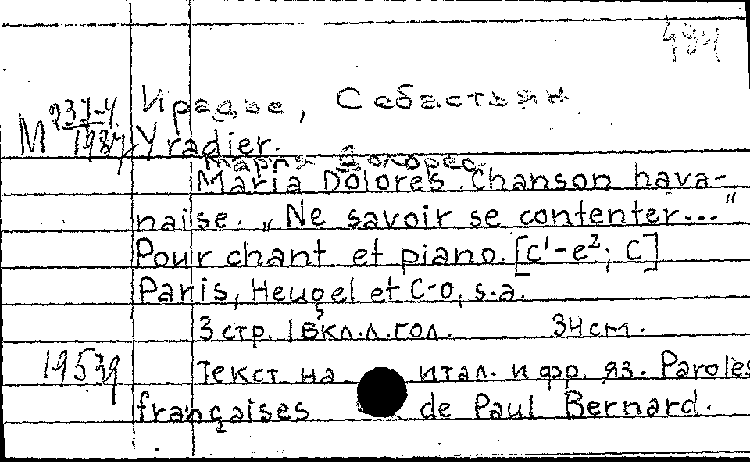 484
Ирадье, Себастьян
М 237-4
1984
Yradier.
Мария Долорес.
Maria Dolores. Chanson hava-
naise. „Ne savoir se contenter..."
Pour chant et piano. [c¹-e²; C]
Paris, Heugel et C-o, s.a.
3 стр. 1 вкл.л. гол. 34 см.
19539
Текст на итал. и фр. яз. Paroles
françaises de Paul Bernard.